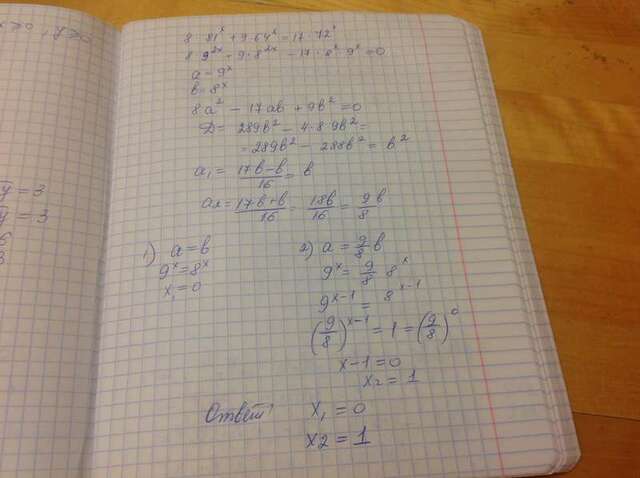 x≥0, y≥0
y = 3
y = 3
8 · 81^x + 9 · 64^x = 17 · 72^x
8 · 9^2x + 9 · 8^2x − 17 · 8^x · 9^x = 0
a = 9^x
b = 8^x
8a² − 17ab + 9b² = 0
D = 289b² − 4·8·9b² =
= 289b² − 288b² = b²
a₁ = (17b−b)/16 = b
a₂ = (17b+b)/16 = 18b/16 = 9b/8
1) a = b
9^x = 8^x
x₁ = 0
2) a = 9/8 b
9^x = 9/8 8^x
9^x−1 = 8^x−1
(9/8)^x−1 = 1 = (9/8)^0
x−1 = 0
x₂ = 1
Ответ:
x₁ = 0
x2 = 1